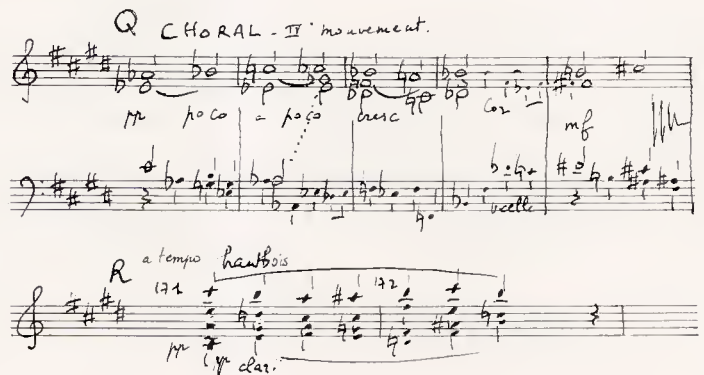 Q CHORAL - IV mouvement.
pp poco a poco cresc Cor mf
vcelle
R a tempo hautbois
171 172
pp pp clar.